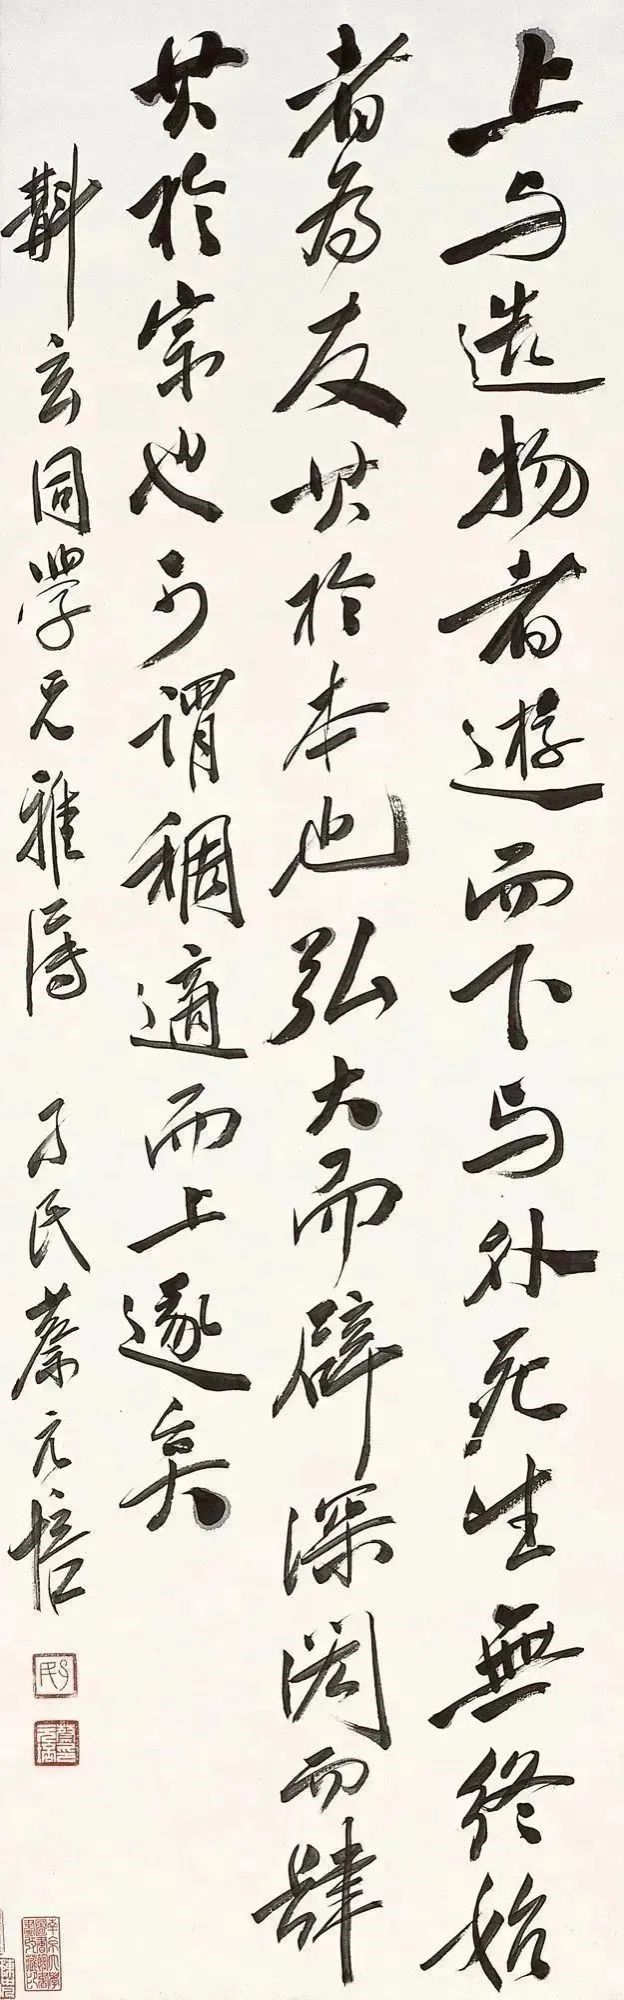 上与造物者遊而下与外死生無終始
者为友其於本也弘大而辟深闳而肆
其於宗也可谓稠適而上遂矣
斠玄同學兄雅属 孑民蔡元培
孑民